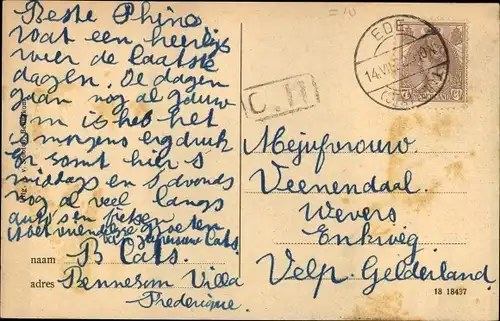 Beste Phino
Wat een heerlijk
weer de laatste
dagen. De dagen
gaan nog al gauw
om is het het
is morgens erg druk
En komt hier s
middags en s'avonds
nog al veel langs
auto's en fietsen
vriendelijke groeten
van Cats.
naam B Cats.
adres Pennesom Villa
Frederique.
C.II
EDE
14.VII
Mejufvrouw
Veenendaal
Wevers
Enkweg
Velp. Gelderland
18 18437